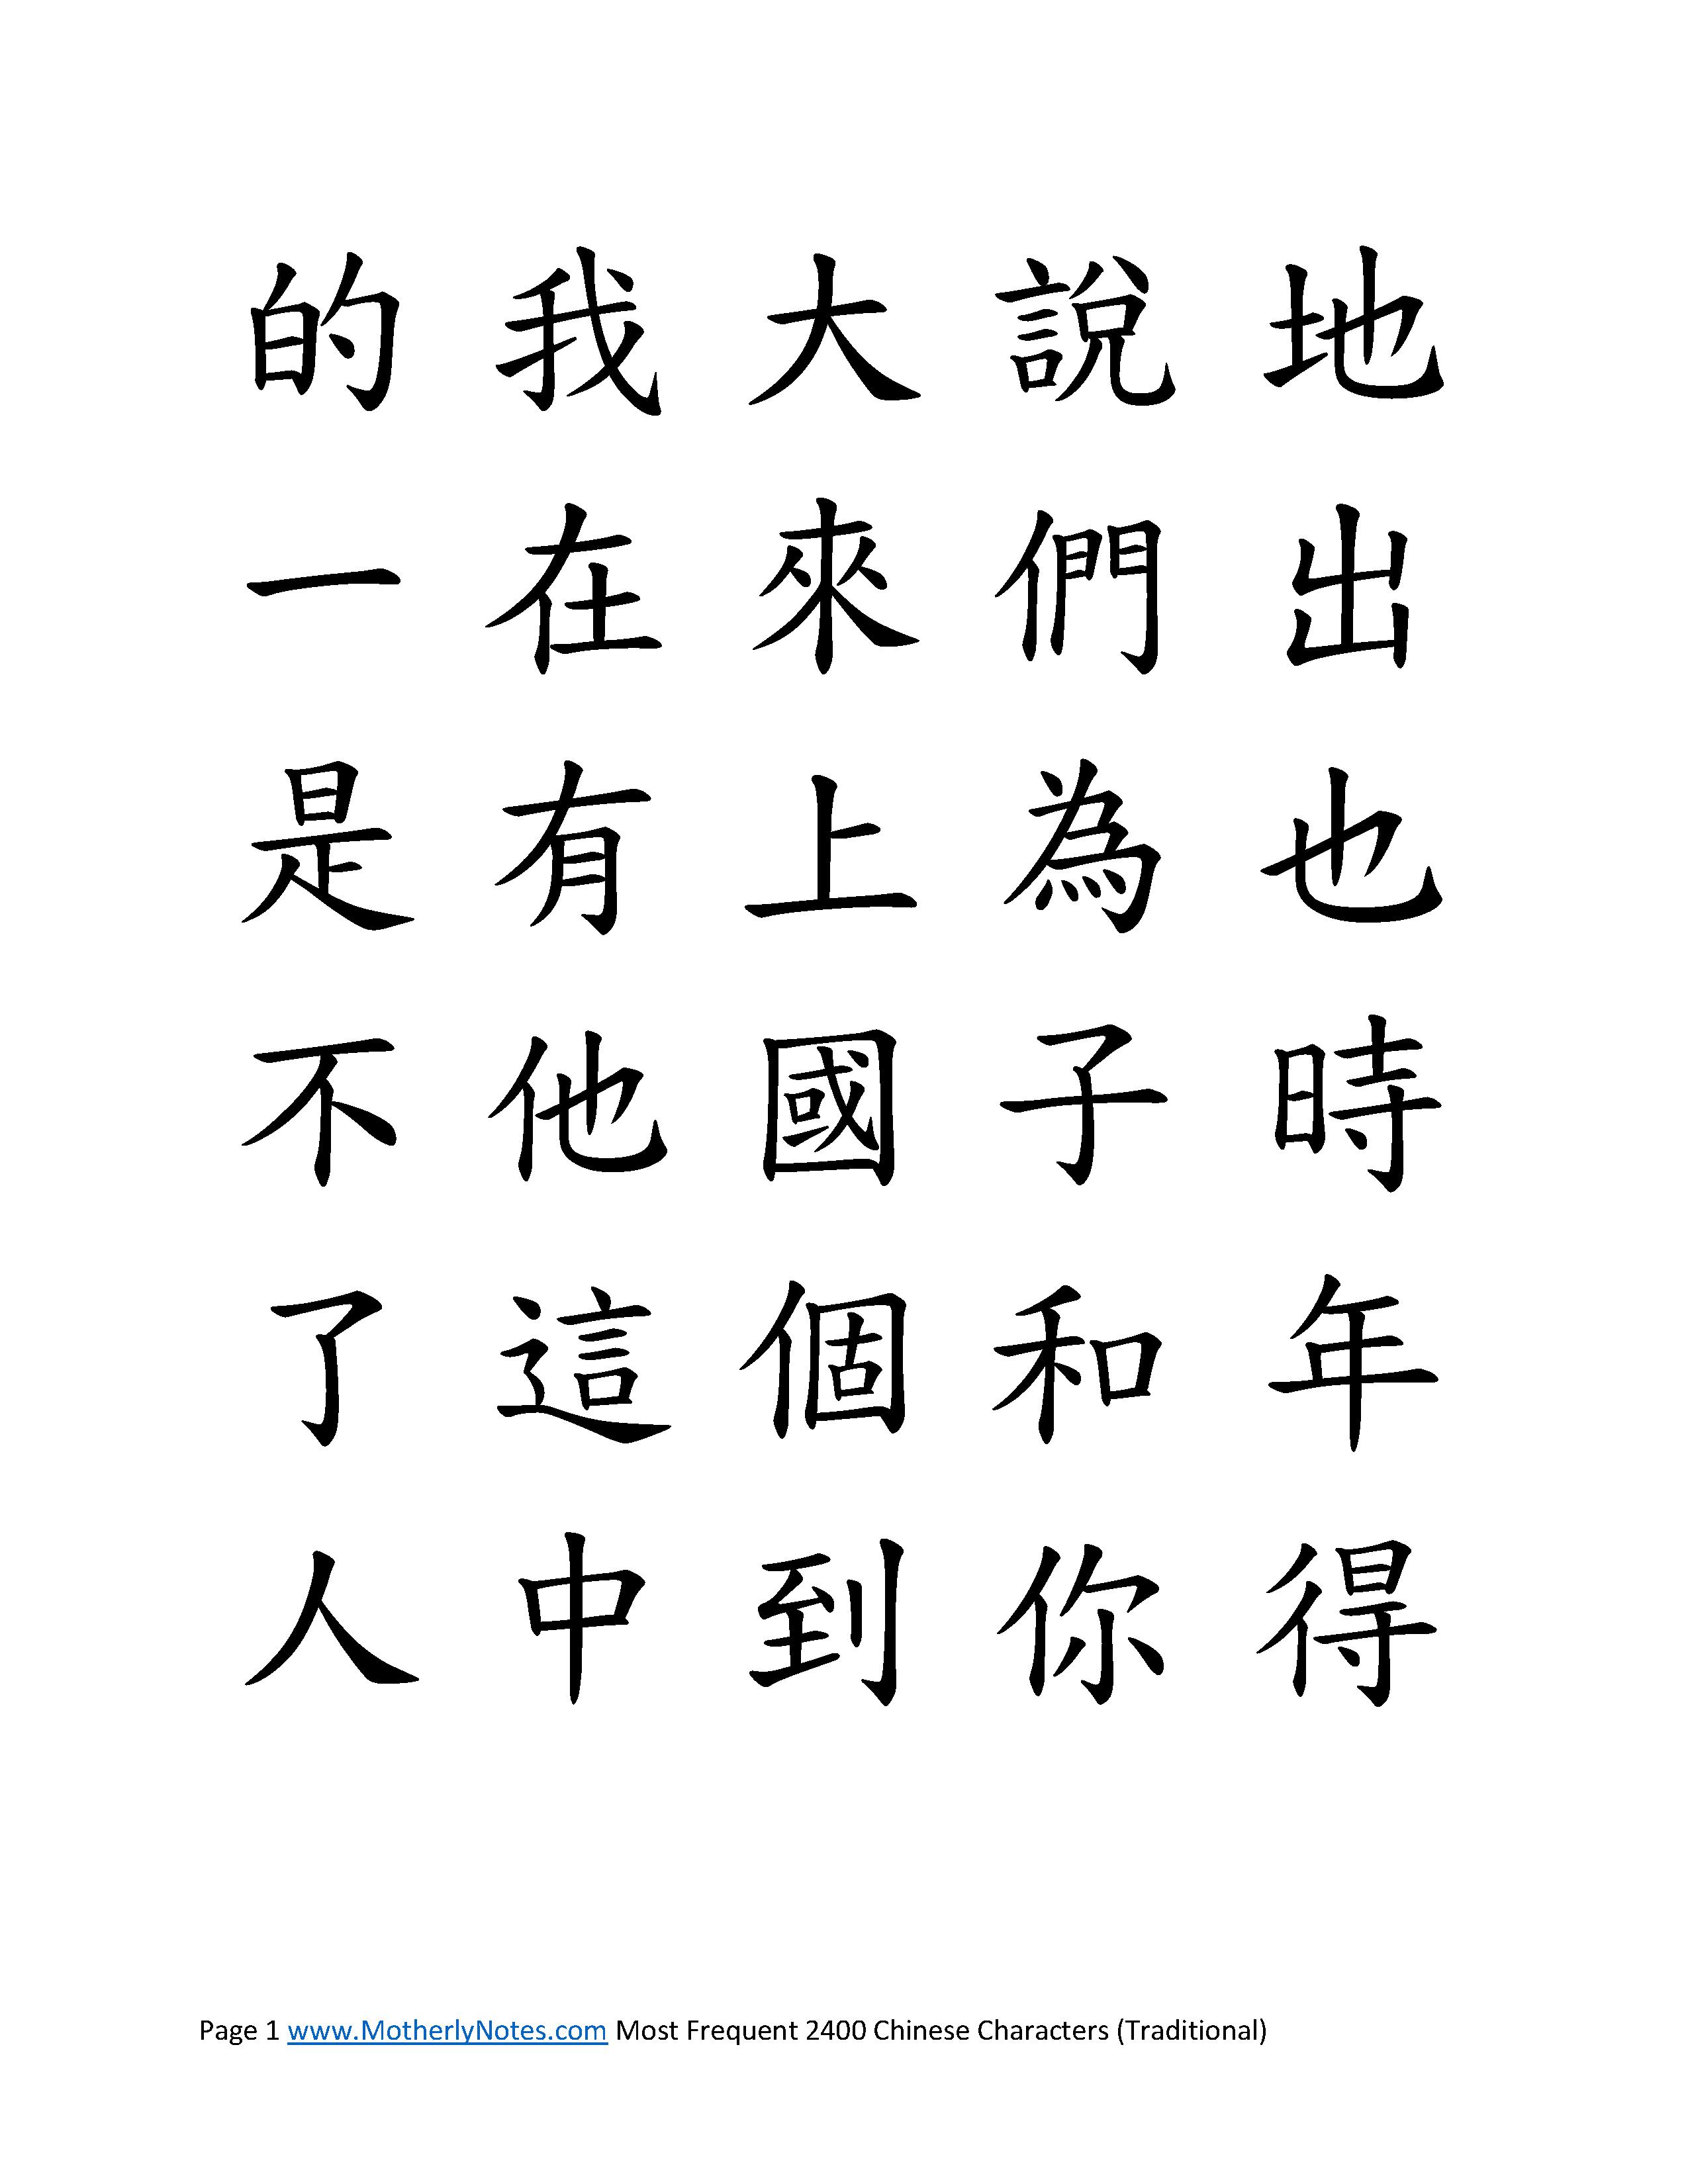 的 我 大 說 地
一 在 來 們 出
是 有 上 為 也
不 他 國 子 時
了 這 個 和 年
人 中 到 你 得
Page 1 www.MotherlyNotes.com Most Frequent 2400 Chinese Characters (Traditional)